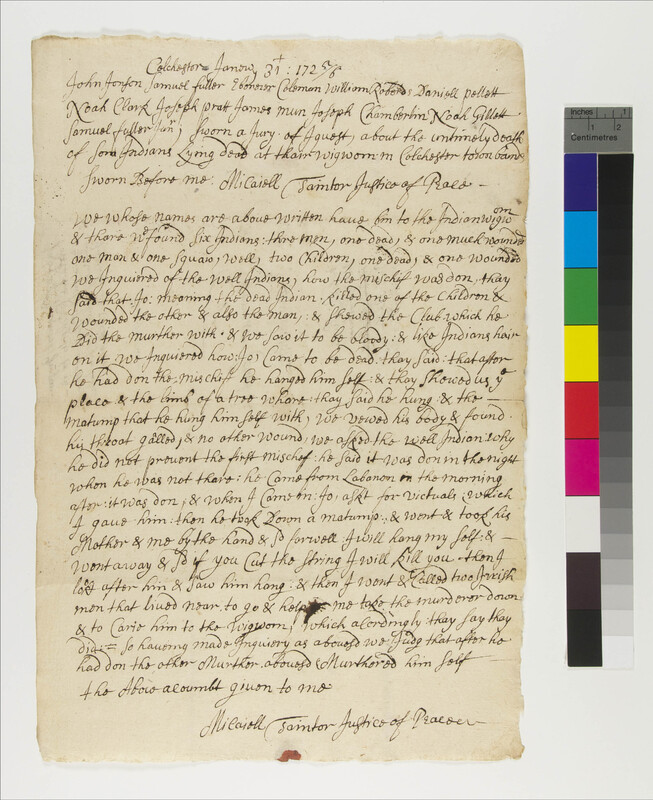 Colchester Janewy 31t : 1725/6
John Jonson Samuel fuller Ebenezer Coleman William Roberds Daniell pellett
Noah Clark Joseph pratt James mun Joseph Chamberlin Noah Gillett
Samuel fuller Junr, Sworn a Jury of Jquest, about the untimely death
of som Indians Lying dead at thair wigworn in Colchester town bounds
Sworn Before me Micaiell Taintor Justice of Peace -
We whose names are above written have bin to the Indian wigworn
& thare we found six Indians: thre men, one dead, & one much wounded
one man & one squaw, well, two Children, one dead, & one wounded
we Inquiered of the well Indians, how the mischif was don, thay
said that, Jo: meaning the dead Indian, killed one of the Children &
wounded the other & also the man, & shewed the Club which he
Did the murther with: & we saw it to be bloody: & like Indians hair
on it we Inquiered how: Jo: came to be dead: thay said: that after
he had don the mischif he hanged him self: & thay shewed us ye
place & the limb of a tree whare: thay said he hung & the -
matump that he hung him self with, we vewed his body & found
his throat galled, & no other wound, we asked the well Indian: why
he did not prevent the first mischef: he said it was don in the night
when he was not thare: he came from Labanon in the morning
after: it was don, & when I came in: Jo, askt for victuals, which
I gave him: then he took Down a matump:, & went & took his
Mother & me by the hand & sd farwell I will hang my self: & -
went away & sd if you Cut the string I will kill you then I
lokt after him & saw him hang: & then I went & Called two Jrish
men that lived near, to go & help me take the murderer down
& to Carie him to the wigworn, which acordingly thay say thay
did: = so haveing made Inquiery as abovesd we Judg that after he
had don the other Murther abovesd Murthered him self
the Above acoumbt given to me
Micaiell Taintor Justice of Peace
Inches 1
1 2
Centimetres